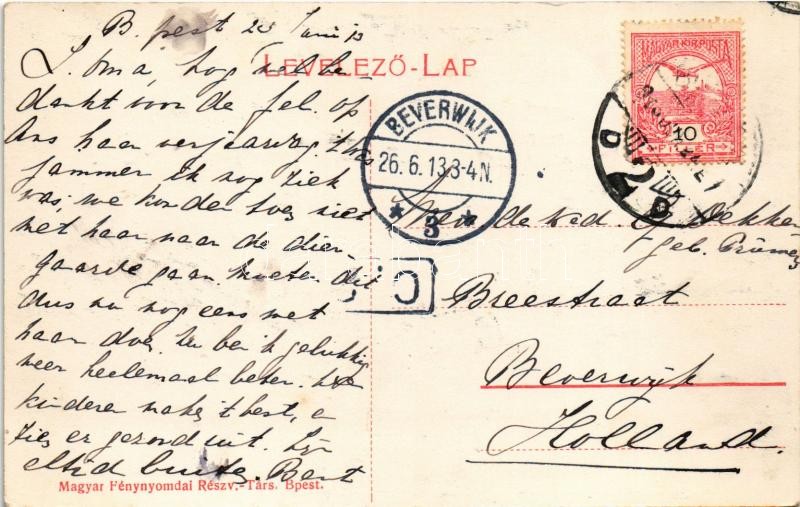 B.pest 23 Juni 13
LEVELEZŐ-LAP
L. Oma, hog wel be-
dankt voor de fel. op
Ans haar verjaarsdg. 't was
jammer ik nog ziek
was, we konden toen niet
met haar naar de dier-
gaarde gaan. Moeten dit
dus nu nog eens met
haar doen. Nu ben ik gelukkig
weer heelemaal beter. De
kinderen maken 't best, en
zien er gezond uit. Zijn
altijd buiten. Bert
Magyar Fénynyomdai Részv.-Társ. Bpest.
BEVERWIJK
26.6.13 3-4N.
* 3 *
MAGYAR KIR. POSTA
10
FILLÉR
Mevr de wed Dekker
geb. Prümers
Breestraat
Beverwijk
Holland.